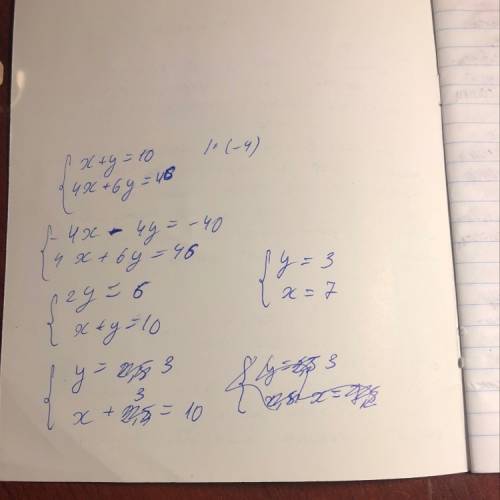 x+y=10 |·(-4)
4x+6y=46
-4x-4y=-40
4x+6y=46
2y=6
x+y=10
y=3
x+3=10
y=3
x=7
y=3
x=